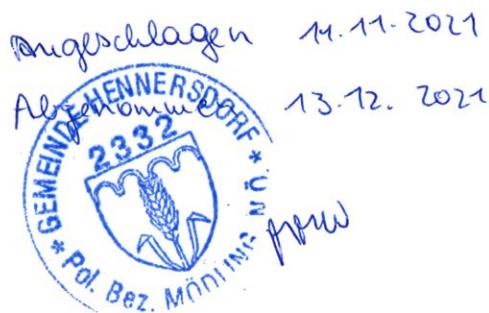 Angeschlagen 11.11.2021
Abgenommen 13.12. 2021
GEMEINDE HENNERSDORF * N.Ö.
2332
* Pol. Bez. MÖDLING